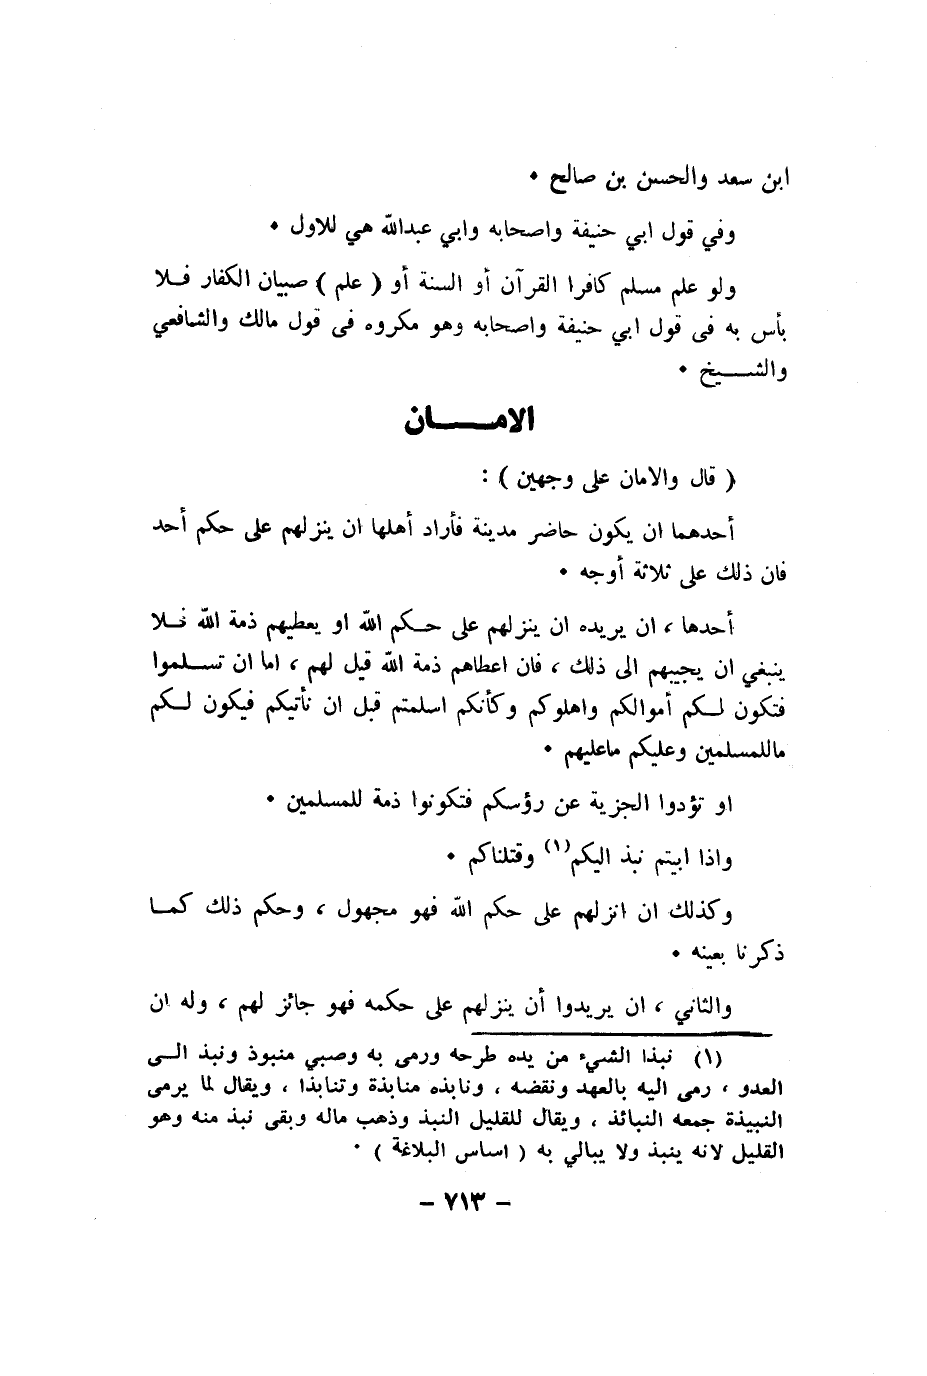 ابن سعد والحسن بن صالح ٠
وفي قول ابي حنيفة واصحابه وابي عبدالله هي للاول ٠
ولو علم مسلم كافرا القرآن أو السنة أو ( علم ) صبيان الكفار فلا
بأس به فى قول ابي حنيفة واصحابه وهو مكروه فى قول مالك والشافعي
والشيخ ٠
الامان
( قال والامان على وجهين ) :
أحدهما ان يكون حاضر مدينة فأراد أهلها ان ينزلهم على حكم أحد
فان ذلك على ثلاثة أوجه ٠
أحدها ، ان يريده ان ينزلهم على حكم الله او يعطيهم ذمة الله فلا
ينبغي ان يجيبهم الى ذلك ، فان اعطاهم ذمة الله قيل لهم ، اما ان تسلموا
فتكون لكم أموالكم واهلوكم وكأنكم اسلمتم قبل ان نأتيكم فيكون لكم
ماللمسلمين وعليكم ماعليهم ٠
او تؤدوا الجزية عن رؤسكم فتكونوا ذمة للمسلمين ٠
واذا ابيتم نبذ اليكم(١) وقتلناكم ٠
وكذلك ان انزلهم على حكم الله فهو مجهول ، وحكم ذلك كما
ذكرنا بعينه ٠
والثاني ، ان يريدوا أن ينزلهم على حكمه فهو جائز لهم ، وله ان
(١) نبذا الشيء من يده طرحه ورمى به وصبي منبوذ ونبذ الى
العدو ، رمى اليه بالعهد ونقضه ، ونابذه منابذة وتنابذا ، ويقال لما يرمى
النبيذة جمعه النبائذ ، ويقال للقليل النبذ وذهب ماله وبقى نبذ منه وهو
القليل لانه ينبذ ولا يبالي به ( اساس البلاغة ) ٠
- ٧١٣ -